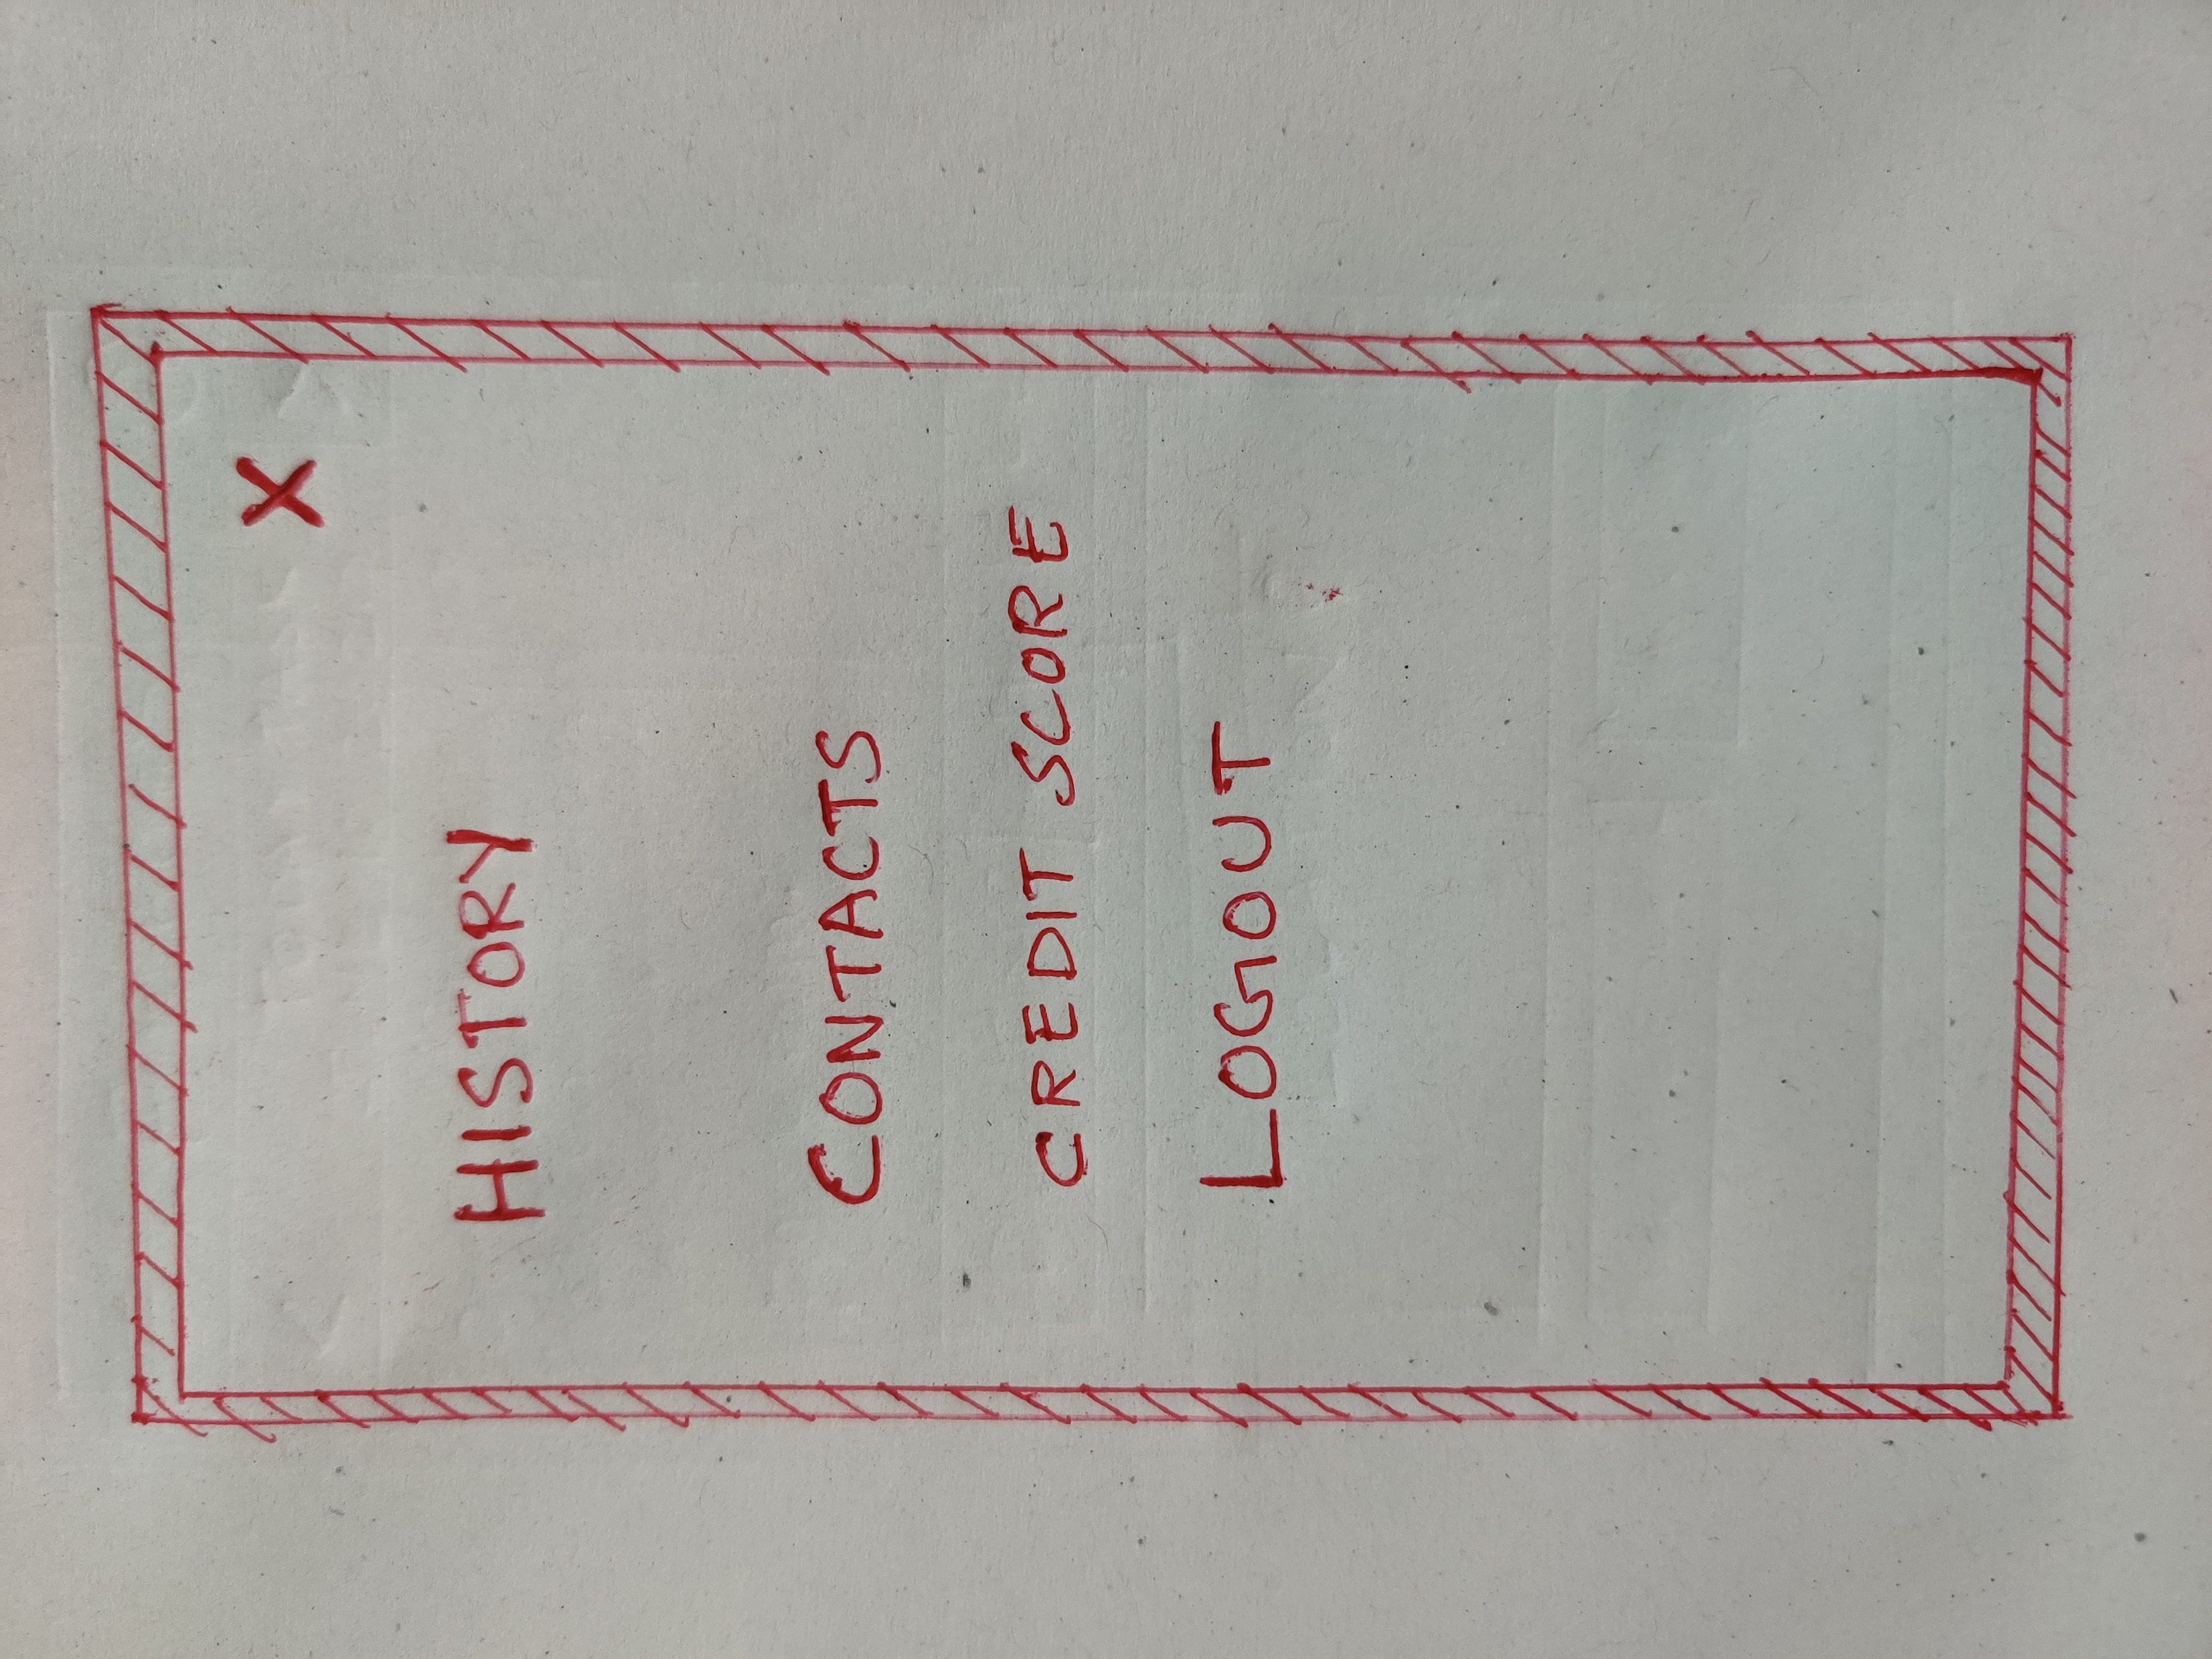 X
HISTORY
CONTACTS
CREDIT SCORE
LOGOUT